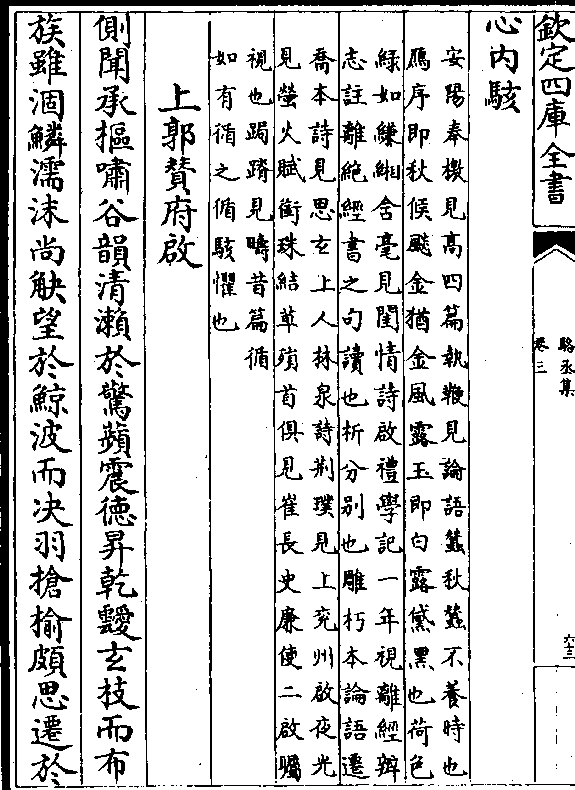 欽定四庫全書
駱丞集
卷三
六十三
心内駭
安陽奉檄見髙四篇執鞭見論語蠶秋蠶不養時也
鴈序即秋候飈金猶金風露玉即白露黛黑也荷色
緑如縑緗含毫見閨情詩啟禮學記一年視離經辨
志註離絶經書之句讀也析分别也雕朽本論語遷
喬本詩見思𤣥上人林泉詩荆璞見上兖州啟夜光
見螢火賦銜珠結草殞首俱見崔長史廉使二啟矚
視也跼蹐見疇昔篇循
如有循之循駭懼也
上郭賛府啟
側聞承摳嘯谷韻清瀬於驚蘋震徳昇乾靉𤣥枝而布
族雖涸鱗濡沫尚觖望於鯨波而决羽搶揄頗思遷於